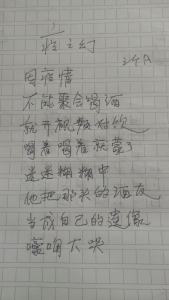 疫之幻
因疫情
不能聚会喝酒
就开视频对饮
喝着喝着就蒙了
迷迷糊糊中
他把那头的酒友
当成自己的遗像
嚎啕大哭